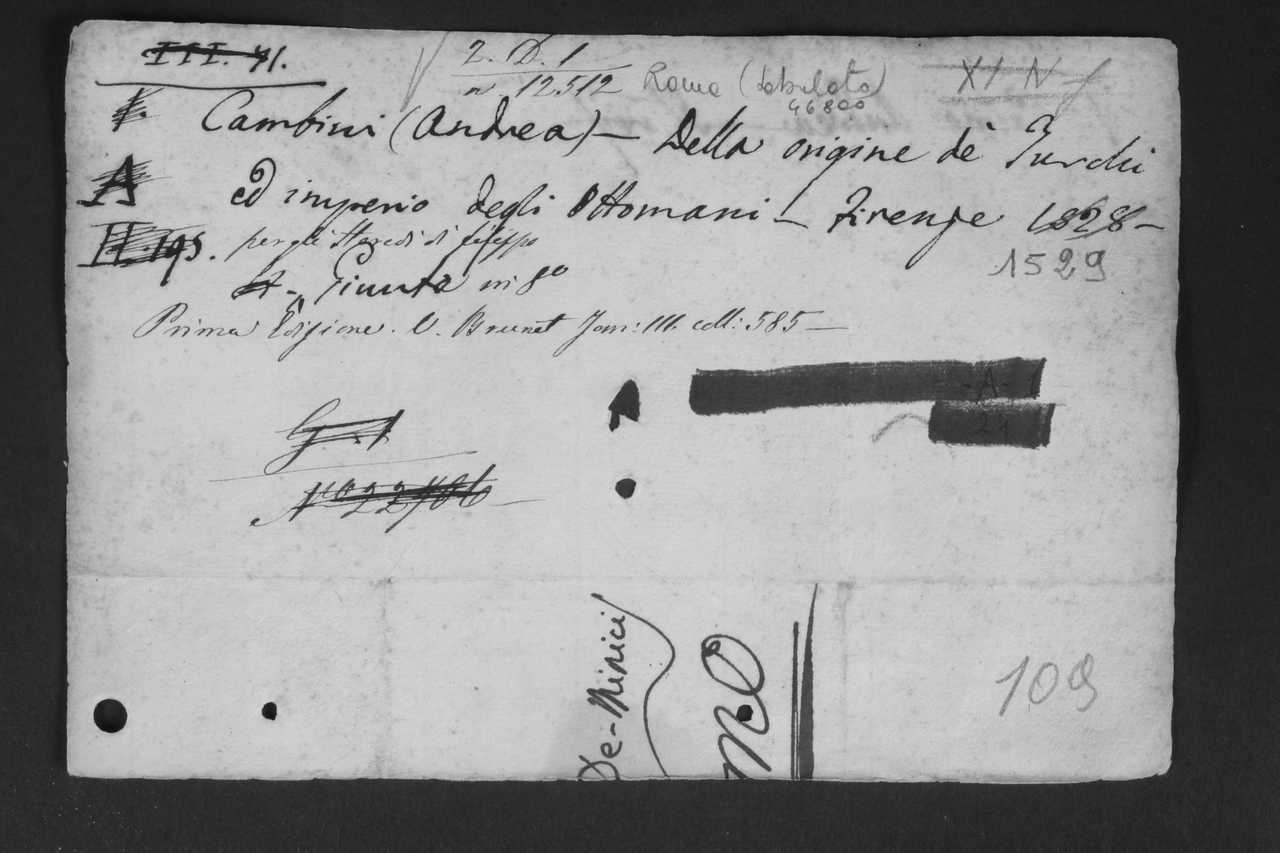 III. 41.
2. D. 1
n. 12512 Roma XI N
46800
Cambini (Andrea) – Della origine de' Turchi
A ed imperio degli Ottomani – Firenze 1828 –
II. 195. per gli Heredi di filippo 1529
Giunta in 8º
Prima Edizione. V. Brunet Tom: III. coll: 585 –
-A-1
24
G. 1
Nº 22706
De-Minicis
109